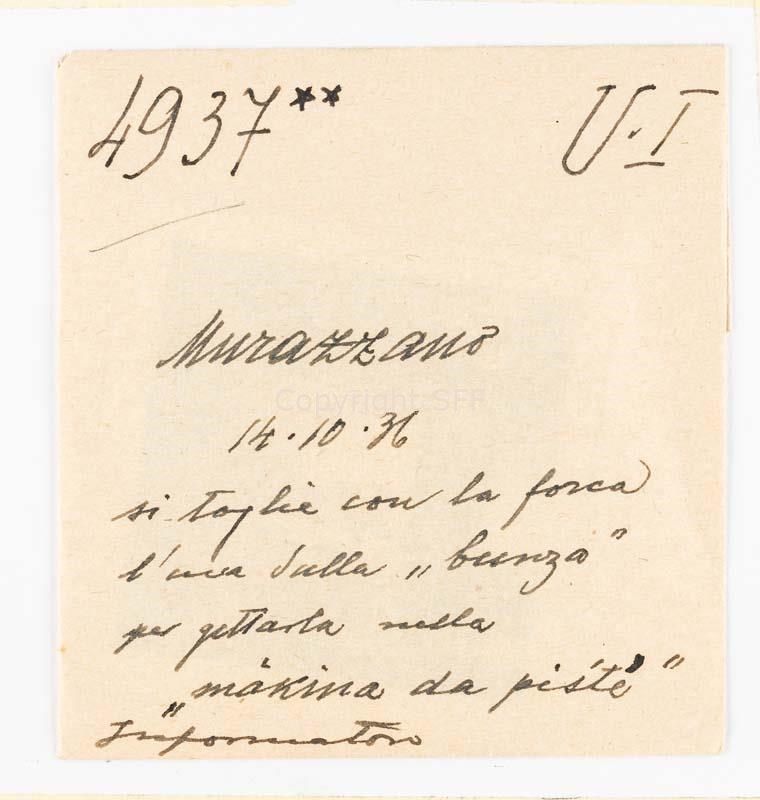 4937** U.I
Murazzano
Copyright SFI
14.10.36
si toglie con la forca
l'uva dalla „bunza"
per gettarla nella
„mákina da pisté"
Informatore